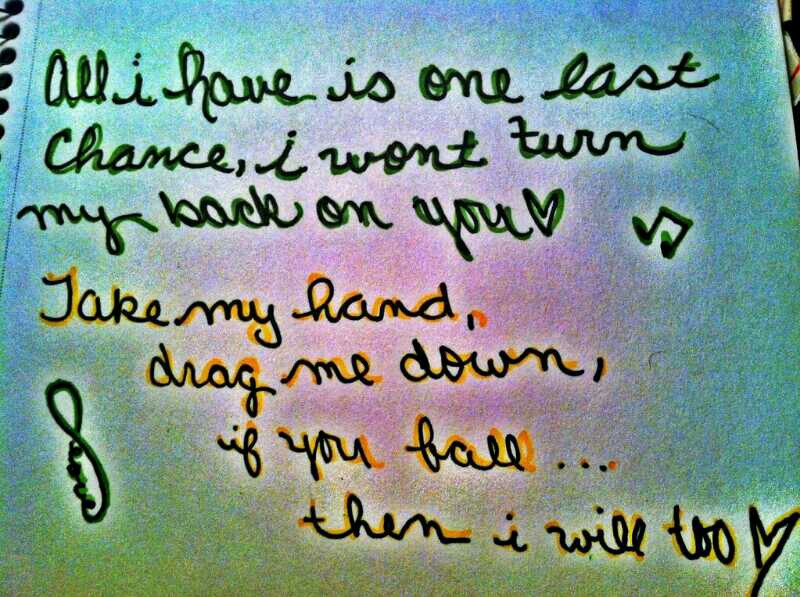 All i have is one last
Chance, i wont turn
my back on you
Take my hand,
drag me down,
if you fall ...
then i will too